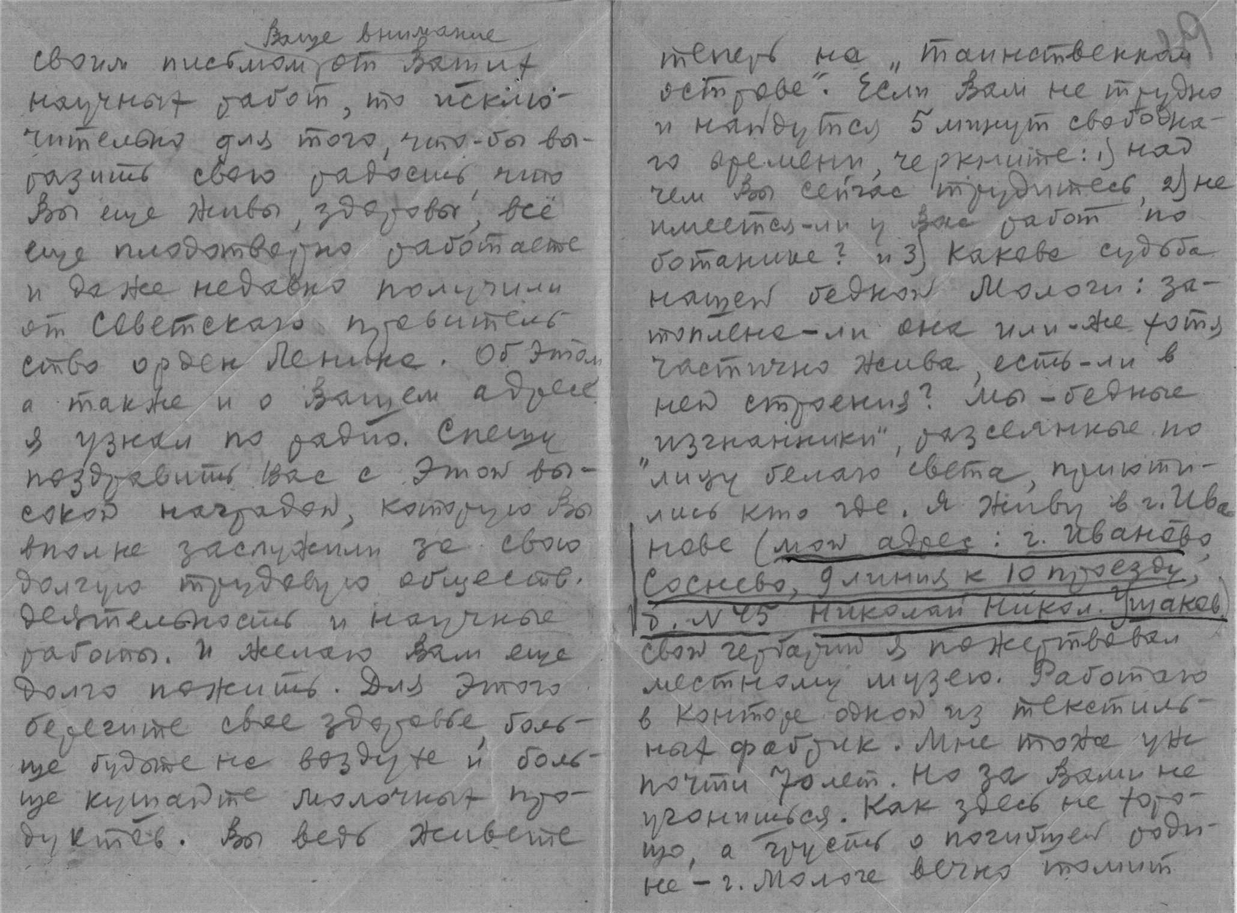 Ваше внимание
своим письмом от Ваших
научных работ, то исклю-
чительно для того, что-бы вы-
разить свою радость, что
Вы еще живы, здоровы, всё
еще плодотворно работаете
и даже недавно получили
от Советскаго правитель
ства орден Ленина. Об этом
а также и о Вашем адресе
я узнал по радио. Спешу
поздравить Вас с этой вы-
сокой наградой, которую Вы
вполне заслужили за свою
долгую трудовую обществ.
деятельность и научные
работы. И желаю Вам еще
долго пожить. Для этого
берегите свое здоровье, боль-
ше будьте на воздухе и боль-
ше кушайте молочных про-
дуктов. Вы ведь живете
теперь на „таинственном
острове“. Если Вам не трудно
и найдутся 5 минут свободна-
го времени, черкните: 1) над
чем Вы сейчас трудитесь, 2) не
имеется-ли у Вас работ по
ботанике? и 3) Какова судьба
нашей бедной Мологи: за-
топлена-ли она или-же хотя
частично жива, есть-ли в
ней строения? Мы-бедные
"изгнанники", разсеянные по
"лицу белаго света, приюти-
лись кто где. Я живу в г. Ива
нове (мой адрес: г. Иваново,
Соснево, 9 линия к 10 проезду,
д. N 45 Николай Никол. Ушаков)
свой гербарий я пожертвовал
местному музею. Работаю
в конторе одной из текстиль-
ных фабрик. Мне тоже уж
почти 70 лет. Но за Вами не
угонишься. Как здесь не хоро-
шо, а грусть о погибшей роди-
не - г. Мологе вечно томит